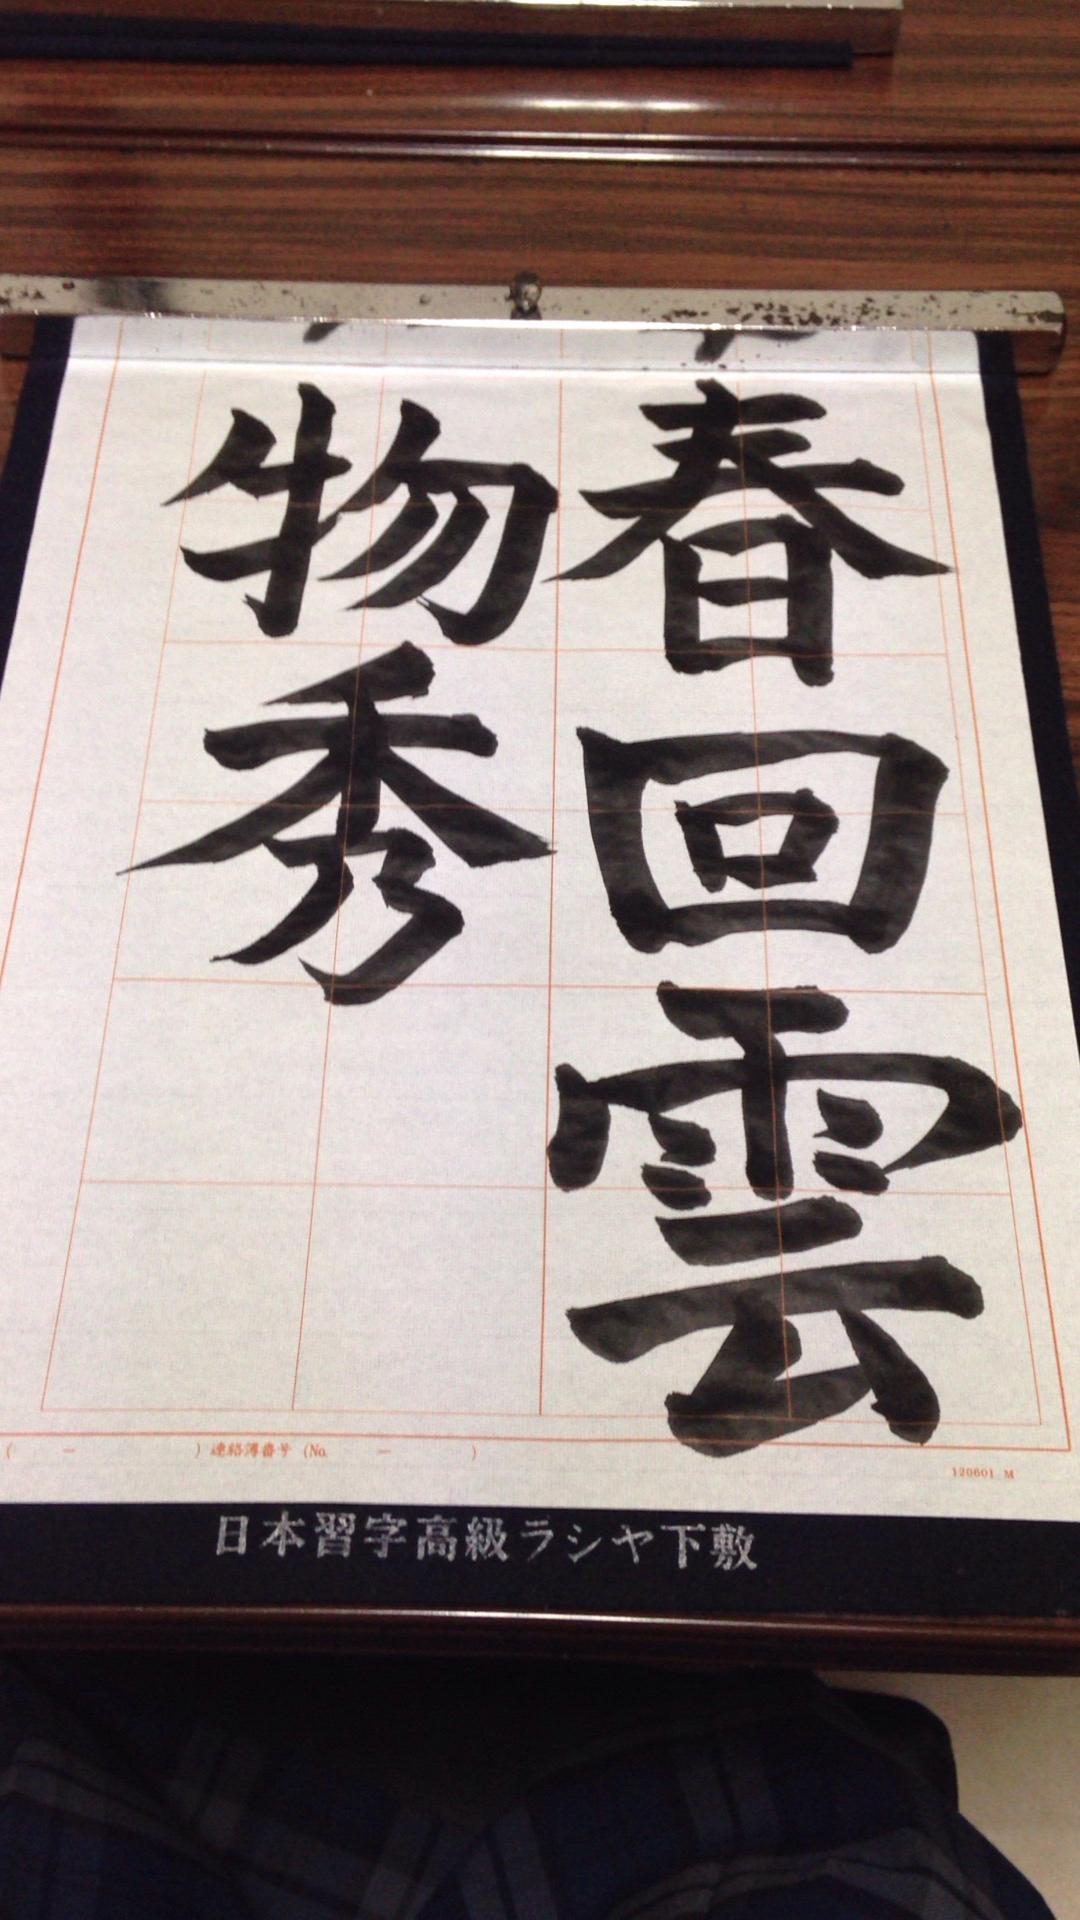 春回雲
物秀
( - ) 連絡簿番号 (No. - )
120601 M
日本習字高級ラシヤ下敷